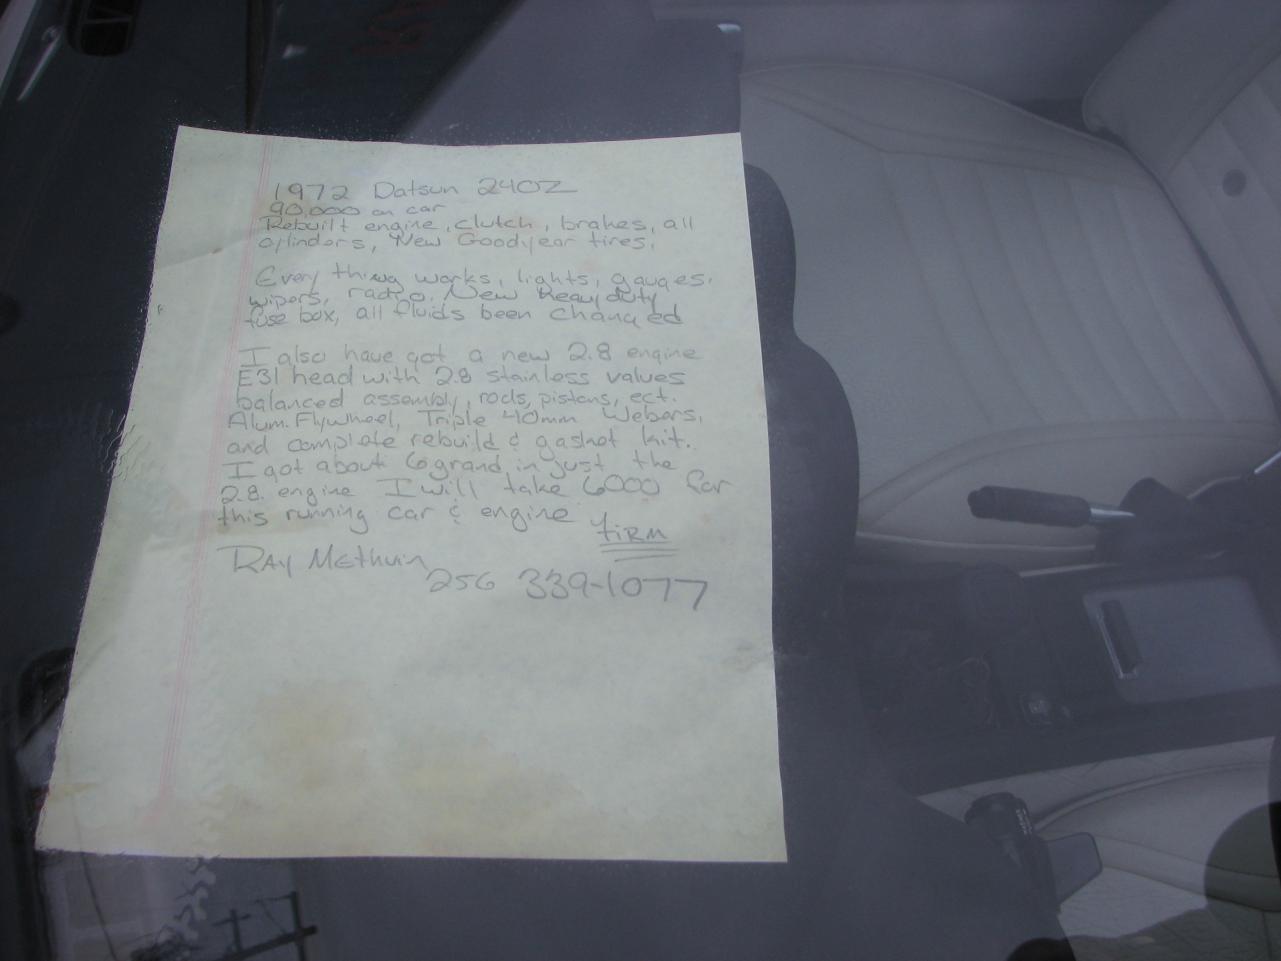 1972 Datsun 240Z
90,000 on car
Rebuilt engine, clutch, brakes, all
cylinders, New Goodyear tires,
Every thing works, lights, gauges,
wipers, radio. New heavy duty
fuse box, all fluids been changed
I also have got a new 2.8 engine
E31 head with 2.8 stainless valves
balanced assembly, rods, pistons, ect.
Alum. Flywheel, Triple 40mm Webers,
and complete rebuild & gasket kit.
I got about 6 grand in just the
2.8. engine I will take 6000 for
this running car & engine
FIRM
RAY Methvin
256 339-1077